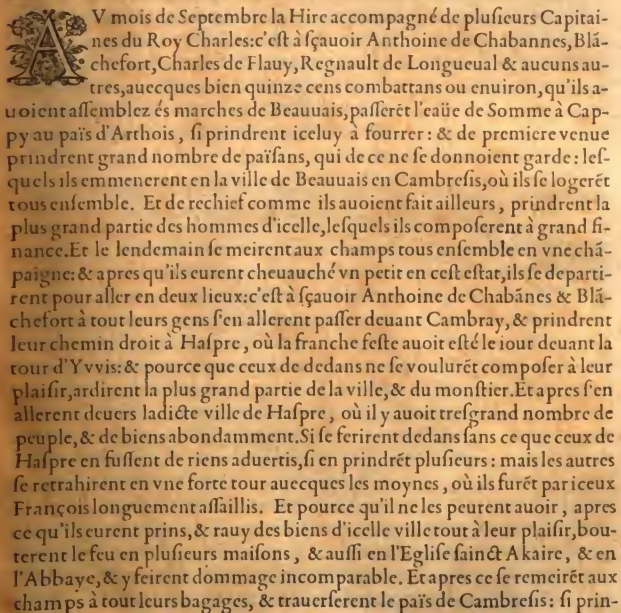 AV mois de Septembre la Hire accompagné de plusieurs Capitai-
nes du Roy Charles: c'est à sçauoir Anthoine de Chabannes, Blã-
chefort, Charles de Flauy, Regnault de Longueual & aucuns au-
tres, auecques bien quinze cens combattans ou enuiron, qu'ils a-
uoient assemblez és marches de Beauuais, passerẽt l'eaüe de Somme à Cap-
py au païs d'Arthois, si prindrent iceluy à fourrer: & de premiere venue
prindrent grand nombre de païsans, qui de ce ne se donnoient garde: les-
quels ils emmenerent en la ville de Beauuais en Cambresis, où ils se logerẽt
tous ensemble. Et de rechief comme ils auoient fait ailleurs, prindrent la
plus grand partie des hommes d'icelle, lesquels ils composerent à grand fi-
nance. Et le lendemain se meirent aux champs tous ensemble en vne chã-
paigne: & apres qu'ils eurent cheuauché vn petit en cest estat, ils se departi-
rent pour aller en deux lieux: c'est à sçauoir Anthoine de Chabãnes & Blã-
chefort à tout leurs gens s'en allerent passer deuant Cambray, & prindrent
leur chemin droit à Haspre, où la franche feste auoit esté le iour deuant la
tour d'Yvvis: & pource que ceux de dedans ne se voulurẽt composer à leur
plaisir, ardirent la plus grand partie de la ville, & du monstier. Et apres s'en
allerent deuers ladicte ville de Haspre, où il y auoit tresgrand nombre de
peuple, & de biens abondamment. Si se ferirent dedans sans ce que ceux de
Haspre en fussent de riens aduertis, si en prindrẽt plusieurs: mais les autres
se retrahirent en vne forte tour auecques les moynes, où ils furẽt par iceux
François longuement assaillis. Et pource qu'il ne les peurent auoir, apres
ce qu'ils eurent prins, & rauy des biens d'icelle ville tout à leur plaisir, bou-
terent le feu en plusieurs maisons, & aussi en l'Eglise sainct Akaire, & en
l'Abbaye, & y feirent dommage incomparable. Et apres ce se remeirẽt aux
champs à tout leurs bagages, & trauerserent le païs de Cambresis: si prin-